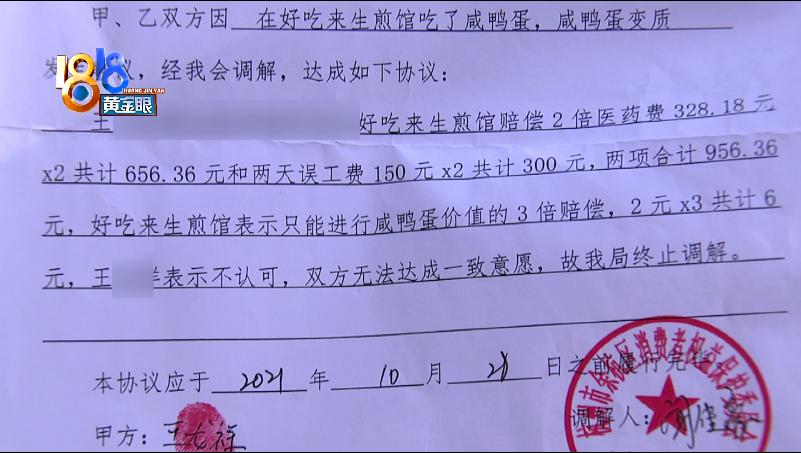 甲、乙双方因 在好吃来生煎馆吃了咸鸭蛋，咸鸭蛋变质
发 议，经我会调解，达成如下协议：
1818
HUANG JIN YAN
黄金眼
王 好吃来生煎馆赔偿2倍医药费328.18元
x2共计656.36元和两天误工费150元x2共计300元，两项合计956.36
元，好吃来生煎馆表示只能进行咸鸭蛋价值的3倍赔偿，2元x3共计6
元，王 祥表示不认可，双方无法达成一致意愿，故我局终止调解。
本协议应于 2021 年 10 月 28 日之前履行完毕
甲方：王 祥
调解人：
杭州市余杭区消费者权益保护委员会